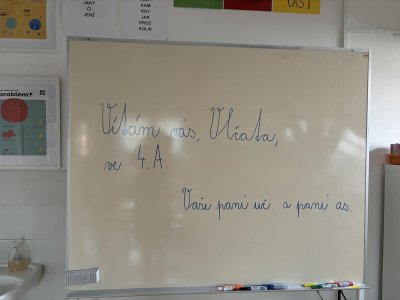 JAKÝ
ČI
JENŽ
KAM
KDY
JAK
PROČ
KOLIK
ČÁST
problém?
Vítám vás, Vlčata,
ve 4. A.
Vaše paní uč. a paní as.